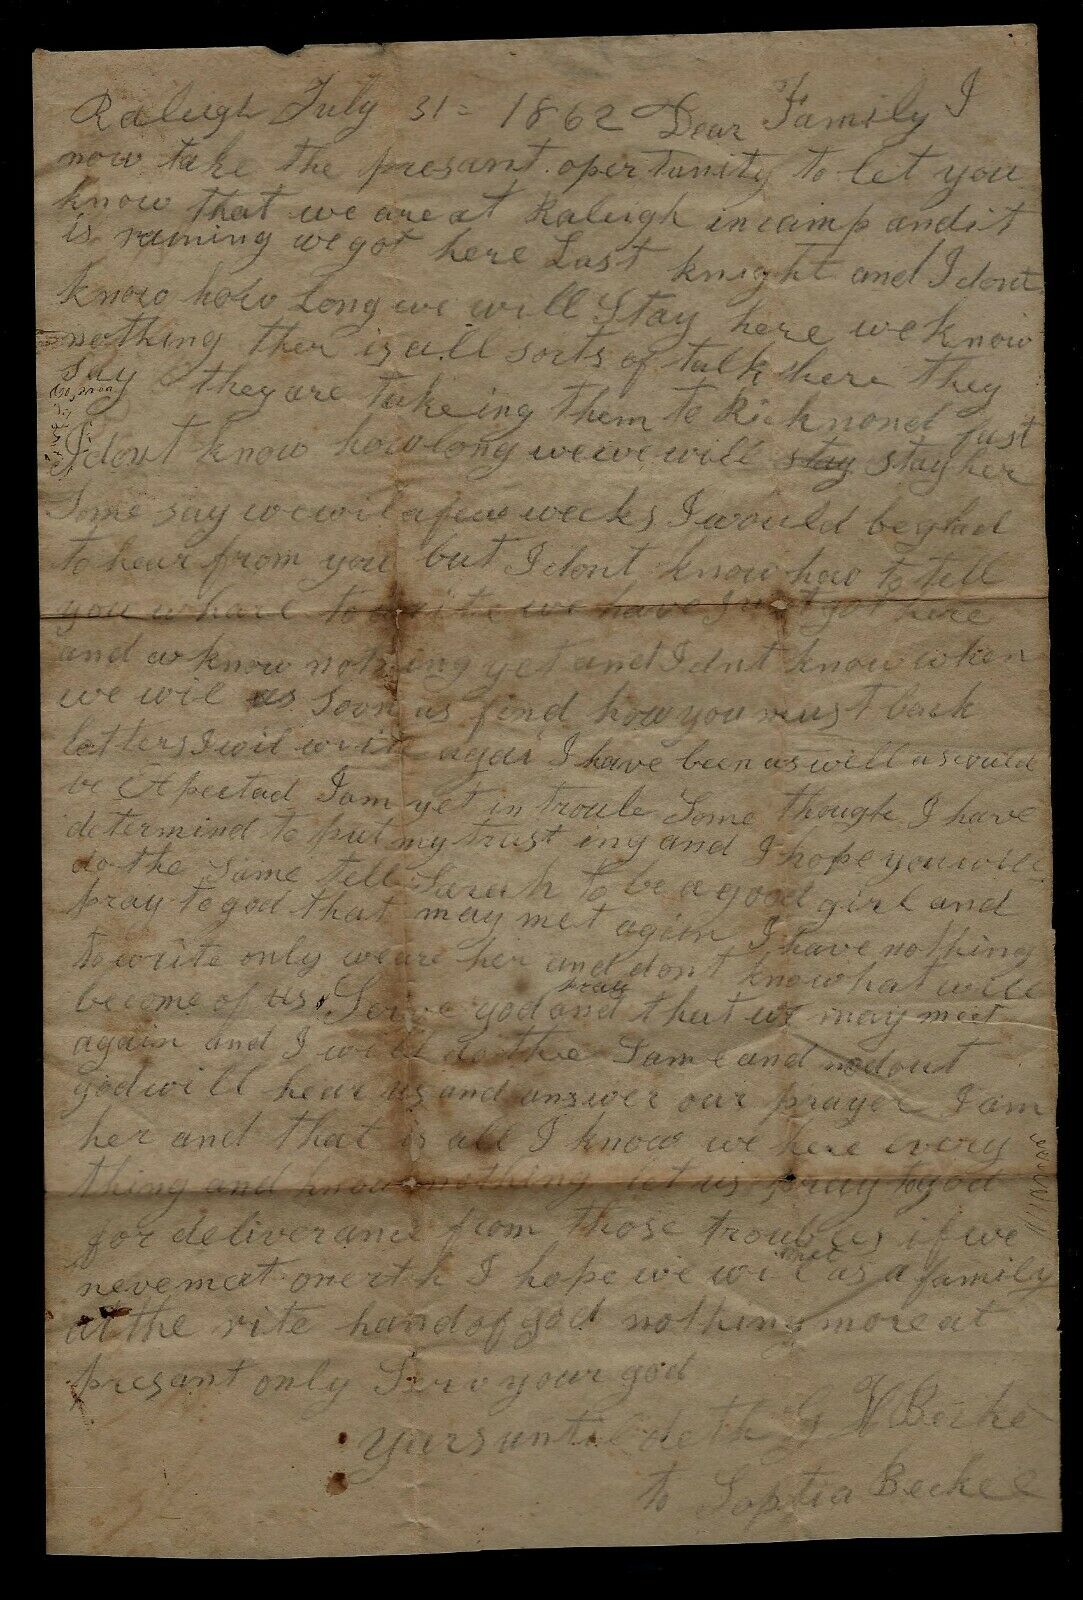 Raleigh July 31= 1862 Dear Family I
now take the presant opertunity to let you
know that we are at Raleigh in camp and it
is raining we got here Last knight and I dont
know how Long we will Stay here we know
nothing ther is all sorts of talk here they
Say they are takeing them to Richmond fast
I dont know how long we we will stay stay her
Some say we wil a few weeks I would be glad
to hear from you but I dont know how to tell
you whare to write we have Just got here
and w know nothing yet and I dnt know when
we wil as soon as find how you must back
letters I wil write agai I have been as well as could
be Expectad I am yet in trouble Some though I have
determind to put my trust in g and I hope you will
do the Same tell Sarah to be a good girl and
pray to god that may met again I have nothing
to write only we are her and dont know what will
become of us Serve god and pray that we may meet
again and I will do the Same and no dout
god will hear us and answer our prayer I am
her and that is all I know we here every
thing and know nothing let us pray to god
for deliverance from those troubles if we
neve meat on erth I hope we will meet as a family
at the rite hand of god nothing more at
presant only Serv your god
Yurs until deth G W Becke
to Sophia Beckee